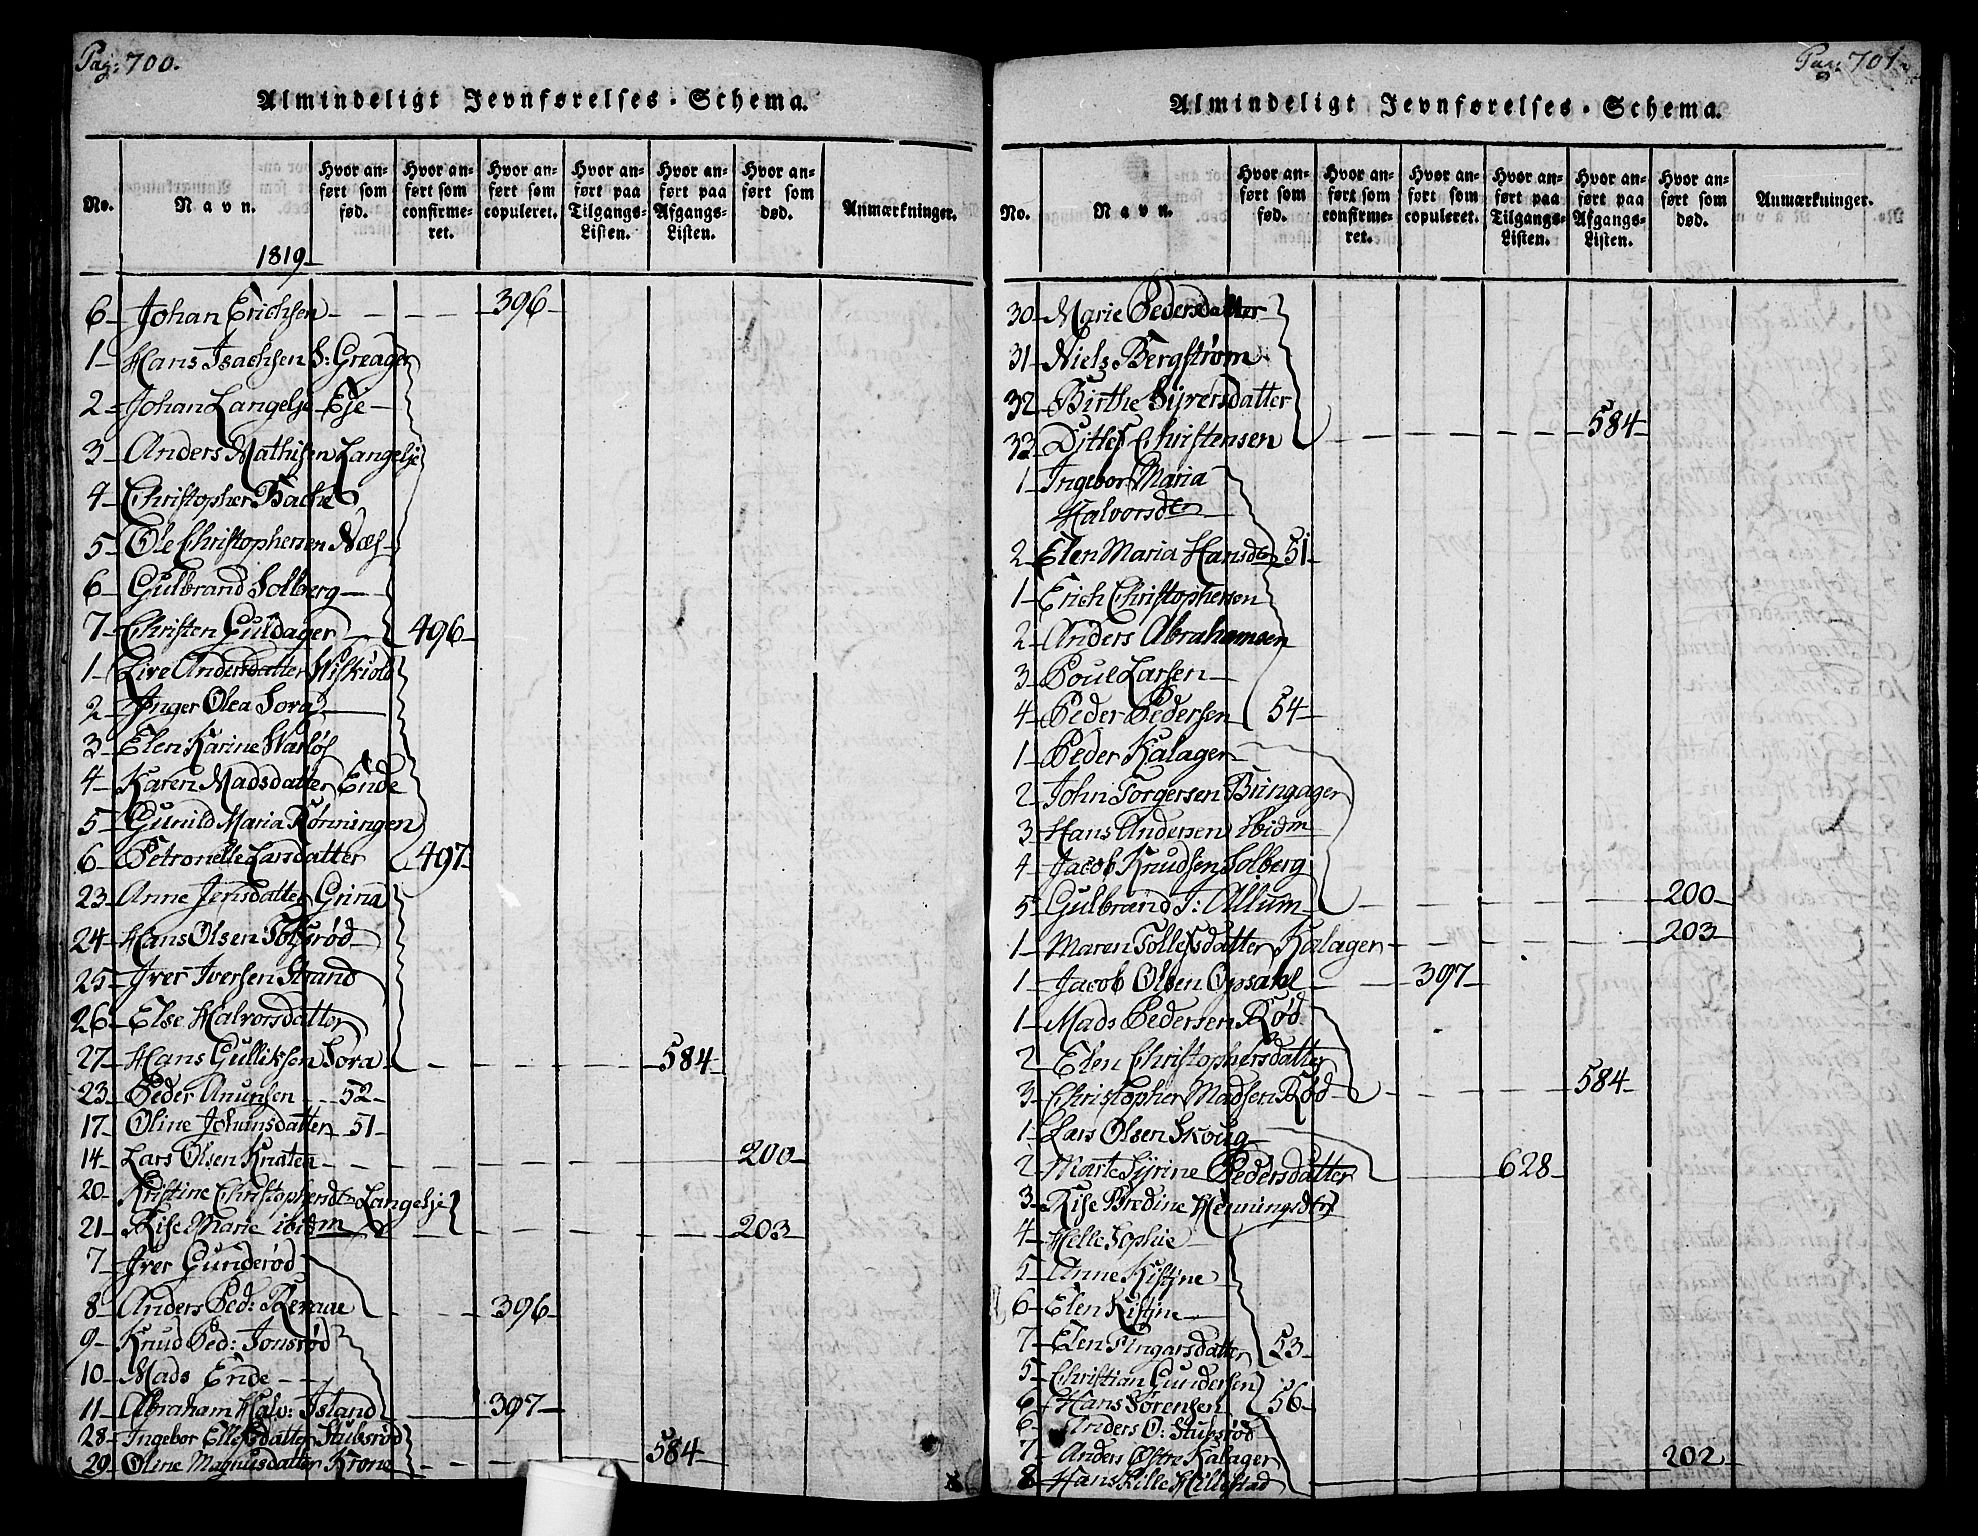 Pag: 700.
Almindeligt Jevnførelses-Schema.
No. Navn. Hvor anført som fød. Hvor anført som confirmeret. Hvor anført som copuleret. Hvor anført paa Tilgangs-Listen. Hvor anført paa Afgangs-Listen. Hvor anført som død. Anmærkninger.
1819
6 Johan Erichsen 396
1 Hans Isachsen S: Greager
2 Johan Langelje Eje
3 Anders Mathisen Langelje
4 Christopher Bache
5 Ole Christophersen Næs
6 Gulbrand Solberg
7 Christen Guldager 496
1 Live Andersdatter Wiskiold
2 Inger Olea Sora
3 Elen Karine Warløs
4 Karen Madsdatter Ende
5 Gunild Maria Rønningen
6 Petronelle Larsdatter 497
23 Anne Jensdatter Grina
24 Hans Olsen Tofsrød
25 Iver Iversen Strand
26 Else Halvorsdatter
27 Hans Gulliksen Sora 584
23 Peder Anunsen 52
17 Oline Johansdatter 51
14 Lars Olsen Knatten 200
20 Kristine Christophersdtr Langelje
21 Kise Marie ibidm 203
7 Iver Gunderød
8 Anders Ped: Reraae 396
9 Knud Ped: Jonsrød
10 Mads Ende
11 Abraham Halv: Island 397
28 Ingebor Ellefsdatter Stubsrød
29 Oline Magnusdatter Krone 584
Pag. 701
Almindeligt Jevnførelses-Schema.
No. Navn. Hvor anført som fød. Hvor anført som confirmeret. Hvor anført som copuleret. Hvor anført paa Tilgangs-Listen. Hvor anført paa Afgangs-Listen. Hvor anført som død. Anmærkninger.
30 Marie Pedersdatter
31 Niels Bergstrøm
32 Birthe Syversdatter
33 Ditlef Christensen 584
1 Ingebor Maria
Halvorsdtr
2 Elen Maria Hansdtr 51
1 Erich Christophersen
2 Anders Abrahamsen
3 Poul Larsen
4 Peder Pedersen 54
1 Peder Kalager
2 John Torgersen Bringager
3 Hans Andersen ibidm
4 Jacob Knudsen Solberg
5 Gulbrand J: Allum 200
1 Maren Tollefsdatter Kalager 203
1 Jacob Olsen Opsahl 397
1 Mads Pedersen Rød
2 Elen Christophersdatter
3 Christopher Madsen Rød 584
1 Lars Olsen Skoug
2 Marte Syrine Pedersdatter 628
3 Kise Bredine Henningsdtr
4 Helle Sophie
5 Anne Kistine
6 Elen Kistine
7 Elen Fingarsdatter 53
5 Christian Gundersen
6 Hans Sørensen 56
6 Anders O: Stubsrød
7 Anders Østre Kalager
8 Hans Lille Hillestad 202